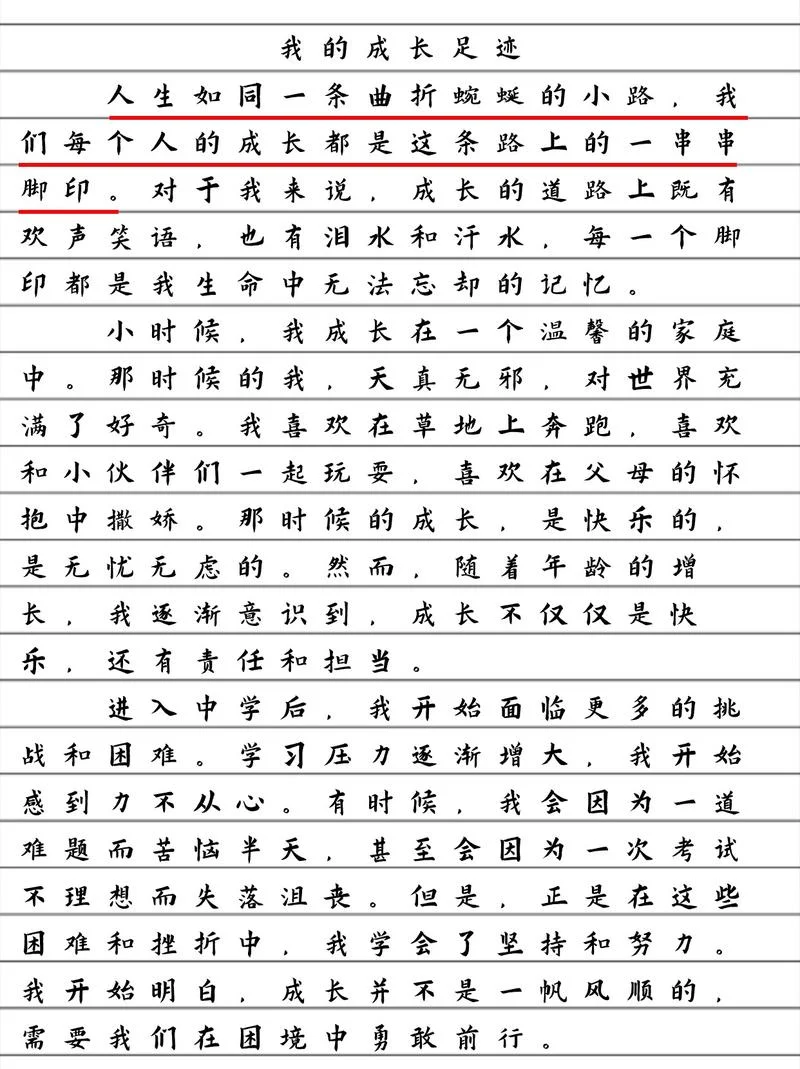 我的成长足迹
人生如同一条曲折蜿蜒的小路，我
们每个人的成长都是这条路上的一串串
脚印。对于我来说，成长的道路上既有
欢声笑语，也有泪水和汗水，每一个脚
印都是我生命中无法忘却的记忆。
小时候，我成长在一个温馨的家庭
中。那时候的我，天真无邪，对世界充
满了好奇。我喜欢在草地上奔跑，喜欢
和小伙伴们一起玩耍，喜欢在父母的怀
抱中撒娇。那时候的成长，是快乐的，
是无忧无虑的。然而，随着年龄的增
长，我逐渐意识到，成长不仅仅是快
乐，还有责任和担当。
进入中学后，我开始面临更多的挑
战和困难。学习压力逐渐增大，我开始
感到力不从心。有时候，我会因为一道
难题而苦恼半天，甚至会因为一次考试
不理想而失落沮丧。但是，正是在这些
困难和挫折中，我学会了坚持和努力。
我开始明白，成长并不是一帆风顺的，
需要我们在困境中勇敢前行。